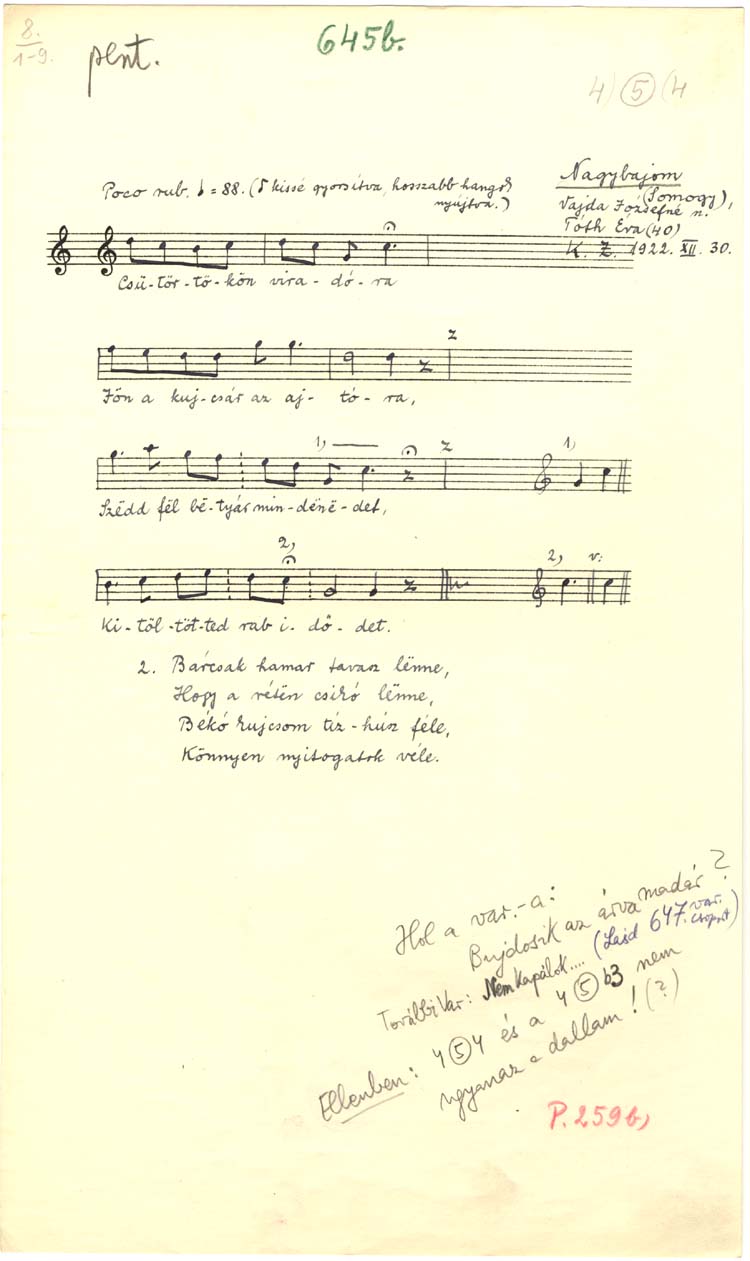 8.
1-9.
pent.
645b.
4) 5 (4
Poco rub. = 88. ( kissé gyorsítva, hosszabb hangok
nyújtva.)
Nagybajom
(Somogy),
Vajda Józsefné n.
Tóth Éva (40)
K. Z. 1922. XII. 30.
Csü-tör-tö-kön vira-dó-ra
Jön a kuj-csár az aj-tó-ra,
z
1,
z
1)
Szëdd fël bë-tyár min-dënë-det,
2,
2,
v:
Ki-töl-töt-ted rab i-dő-det.
2. Bárcsak hamar tavasz lënne,
Hogy a rétën csikó lënne,
Békó kujcsom tíz-húsz féle,
Könnyen nyitogatok véle.
Hol a var.-a:
Bujdosik az árva madár?
További var: Nem kapálok.... (Lásd 647. var. csoport)
Ellenben: 4 5 4 és a 4 5 b3 nem
ugyanaz a dallam! (?)
P. 259 b)